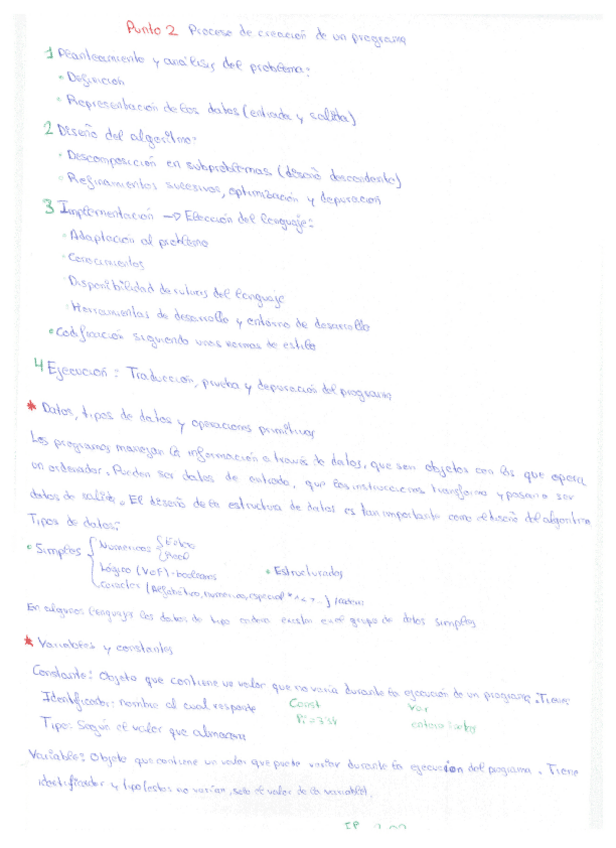 Punto 2 Proceso de creación de un programa
1 Planteamiento y análisis del problema:
• Definición
• Representación de los datos (entrada y salida)
2 Diseño del algoritmo:
• Descomposición en subproblemas (diseño descendente)
• Refinamientos sucesivos, optimización y depuración
3 Implementación → Elección del lenguaje:
• Adaptación al problema
• Conocimientos
• Disponibilidad de del lenguaje
• Herramientas de desarrollo y entorno de desarrollo
• Codificación siguiendo unas normas de estilo
4 Ejecución: Traducción, prueba y depuración del programa
* Datos, tipos de datos y operaciones primitivas
Los programas manejan la información a través de datos, que son objetos con los que opera
un ordenador. Pueden ser datos de entrada, que las instrucciones transforma y pasan a ser
datos de salida. El diseño de la estructura de datos es tan importante como el diseño del algoritmo
Tipos de datos:
• Simples { Numéricos { Entero
Real
Lógico (VoF)-booleanos • Estructurados
Caracter (Alfabético, numéricos, especial
En algunos lenguajes los datos de tipo cadena existen en el grupo de datos simples
* Variables y constantes
Constante: Objeto que contiene un valor que no varía durante la ejecución de un programa. Tiene:
Identificador: nombre al cual responde Const Var
Tipo: Según el valor que almacena Pi = entero
Variables: Objeto que contiene un valor que puede variar durante la ejecución del programa. Tiene
identificador y tipo (estos no varían, solo el valor de la variable).